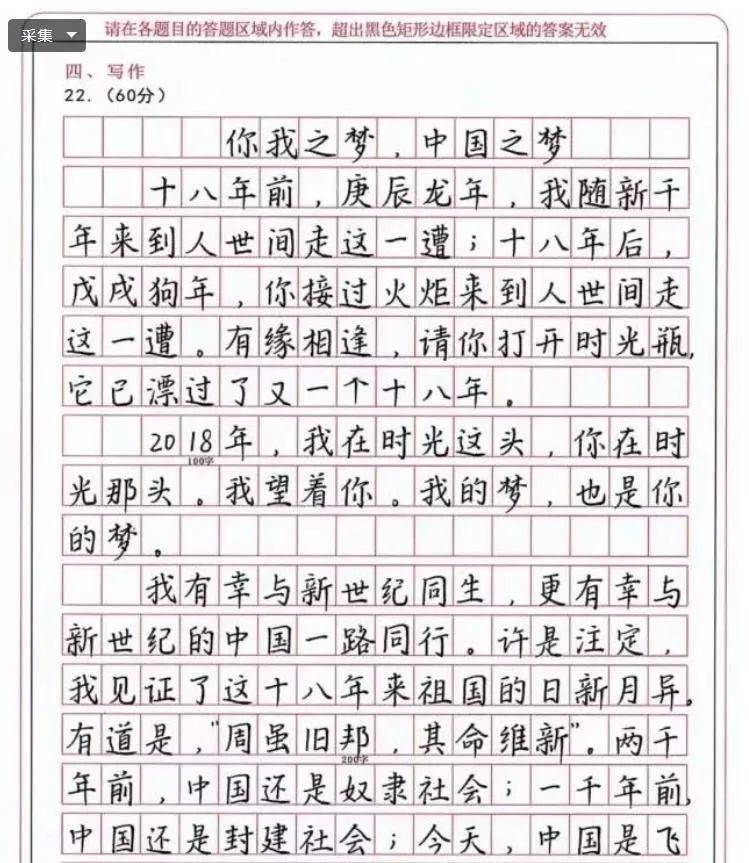 采集
请在各题目的答题区域内作答，超出黑色矩形边框限定区域的答案无效
四、写作
22.（60分）
你我之梦，中国之梦
十八年前，庚辰龙年，我随新千
年来到人世间走这一遭；十八年后，
戊戌狗年，你接过火炬来到人世间走
这一遭。有缘相逢，请你打开时光瓶，
它已漂过了又一个十八年。
2018年，我在时光这头，你在时
100字
光那头。我望着你。我的梦，也是你
的梦。
我有幸与新世纪同生，更有幸与
新世纪的中国一路同行。许是注定，
我见证了这十八年来祖国的日新月异。
有道是，"周虽旧邦，其命维新"。两千
200字
年前，中国还是奴隶社会；一千年前，
中国还是封建社会；今天，中国是飞